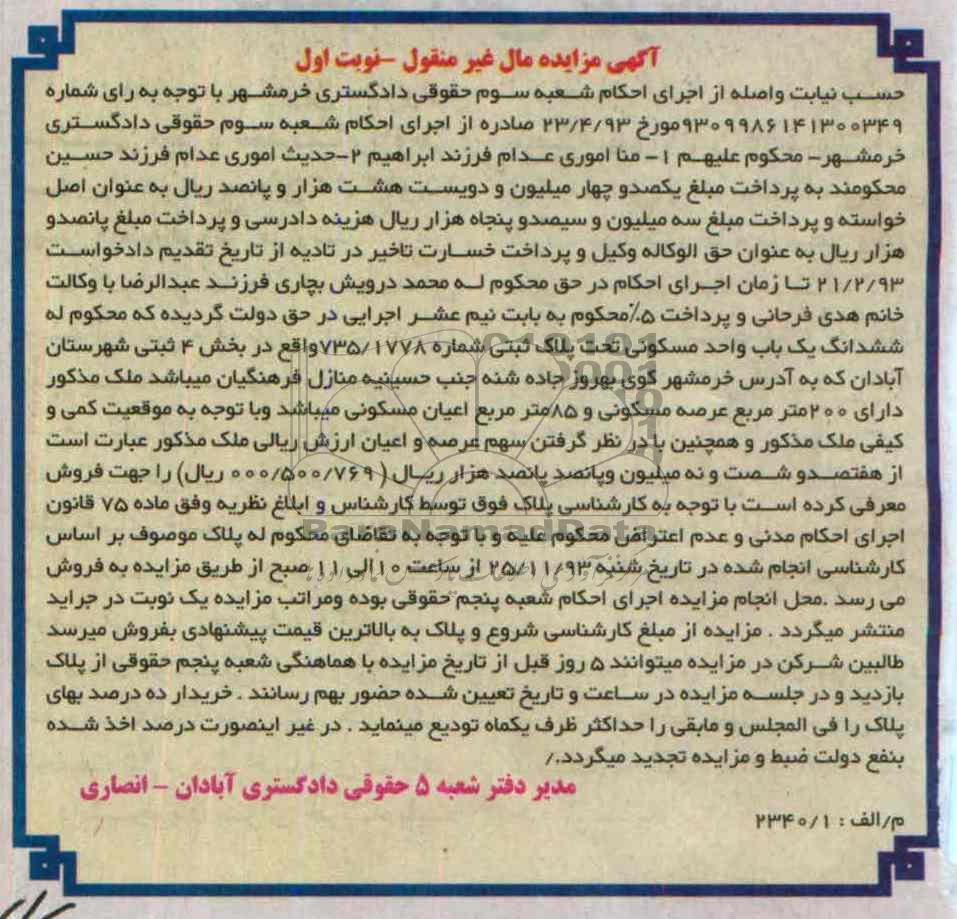 آگهی مزایده مال غیر منقول -نوبت اول
حسب نیابت واصله از اجرای احکام شعبه سوم حقوقی دادگستری خرمشهر با توجه به رای شماره
۹۳۰۹۹۸۶۱۴۱۳۰۰۳۴۹مورخ ۲۳/۴/۹۳ صادره از اجرای احکام شعبه سوم حقوقی دادگستری
خرمشهر- محکوم علیهم ۱- منا اموری عدام فرزند ابراهیم ۲-حدیث اموری عدام فرزند حسین
محکومند به پرداخت مبلغ یکصدو چهار میلیون و دویست هشت هزار و پانصد ریال به عنوان اصل
خواسته و پرداخت مبلغ سه میلیون و سیصدو پنجاه هزار ریال هزینه دادرسی و پرداخت مبلغ پانصدو
هزار ریال به عنوان حق الوکاله وکیل و پرداخت خسارت تاخیر در تادیه از تاریخ تقدیم دادخواست
۲۱/۲/۹۳ تا زمان اجرای احکام در حق محکوم له محمد درویش بچاری فرزند عبدالرضا با وکالت
خانم هدی فرحانی و پرداخت ۵٪محکوم به بابت نیم عشر اجرایی در حق دولت گردیده که محکوم له
ششدانگ یک باب واحد مسکونی تحت پلاک ثبتی شماره ۷۳۵/۱۷۷۸واقع در بخش ۴ ثبتی شهرستان
آبادان که به آدرس خرمشهر کوی بهروز جاده شنه جنب حسینیه منازل فرهنگیان میباشد ملک مذکور
دارای ۲۰۰متر مربع عرصه مسکونی و ۸۵متر مربع اعیان مسکونی میباشد وبا توجه به موقعیت کمی و
کیفی ملک مذکور و همچنین با در نظر گرفتن سهم عرصه و اعیان ارزش ریالی ملک مذکور عبارت است
از هفتصدو شصت و نه میلیون وپانصد پانصد هزار ریال ( ۰۰۰/۵۰۰/۷۶۹ ریال) را جهت فروش
معرفی کرده است با توجه به کارشناسی پلاک فوق توسط کارشناس و ابلاغ نظریه وفق ماده ۷۵ قانون
اجرای احکام مدنی و عدم اعتراض محکوم علیه و با توجه به تقاضای محکوم له پلاک موصوف بر اساس
کارشناسی انجام شده در تاریخ شنبه ۲۵/۱۱/۹۳ از ساعت ۱۰الی ۱۱ صبح از طریق مزایده به فروش
می رسد .محل انجام مزایده اجرای احکام شعبه پنجم حقوقی بوده ومراتب مزایده یک نوبت در جراید
منتشر میگردد . مزایده از مبلغ کارشناسی شروع و پلاک به بالاترین قیمت پیشنهادی بفروش میرسد
طالبین شرکن در مزایده میتوانند ۵ روز قبل از تاریخ مزایده با هماهنگی شعبه پنجم حقوقی از پلاک
بازدید و در جلسه مزایده در ساعت و تاریخ تعیین شده حضور بهم رسانند . خریدار ده درصد بهای
پلاک را فی المجلس و مابقی را حداکثر ظرف یکماه تودیع مینماید . در غیر اینصورت درصد اخذ شده
بنفع دولت ضبط و مزایده تجدید میگردد./
مدیر دفتر شعبه ۵ حقوقی دادگستری آبادان - انصاری
م/الف : ۲۳۴۰/۱
BaraNamadData